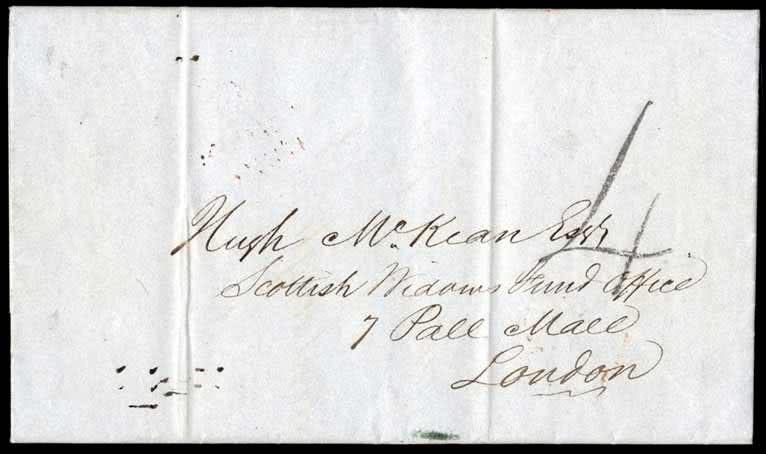 4
Hugh McKean Esqr.
Scottish Widows Fund Office
7 Pall Mall
London